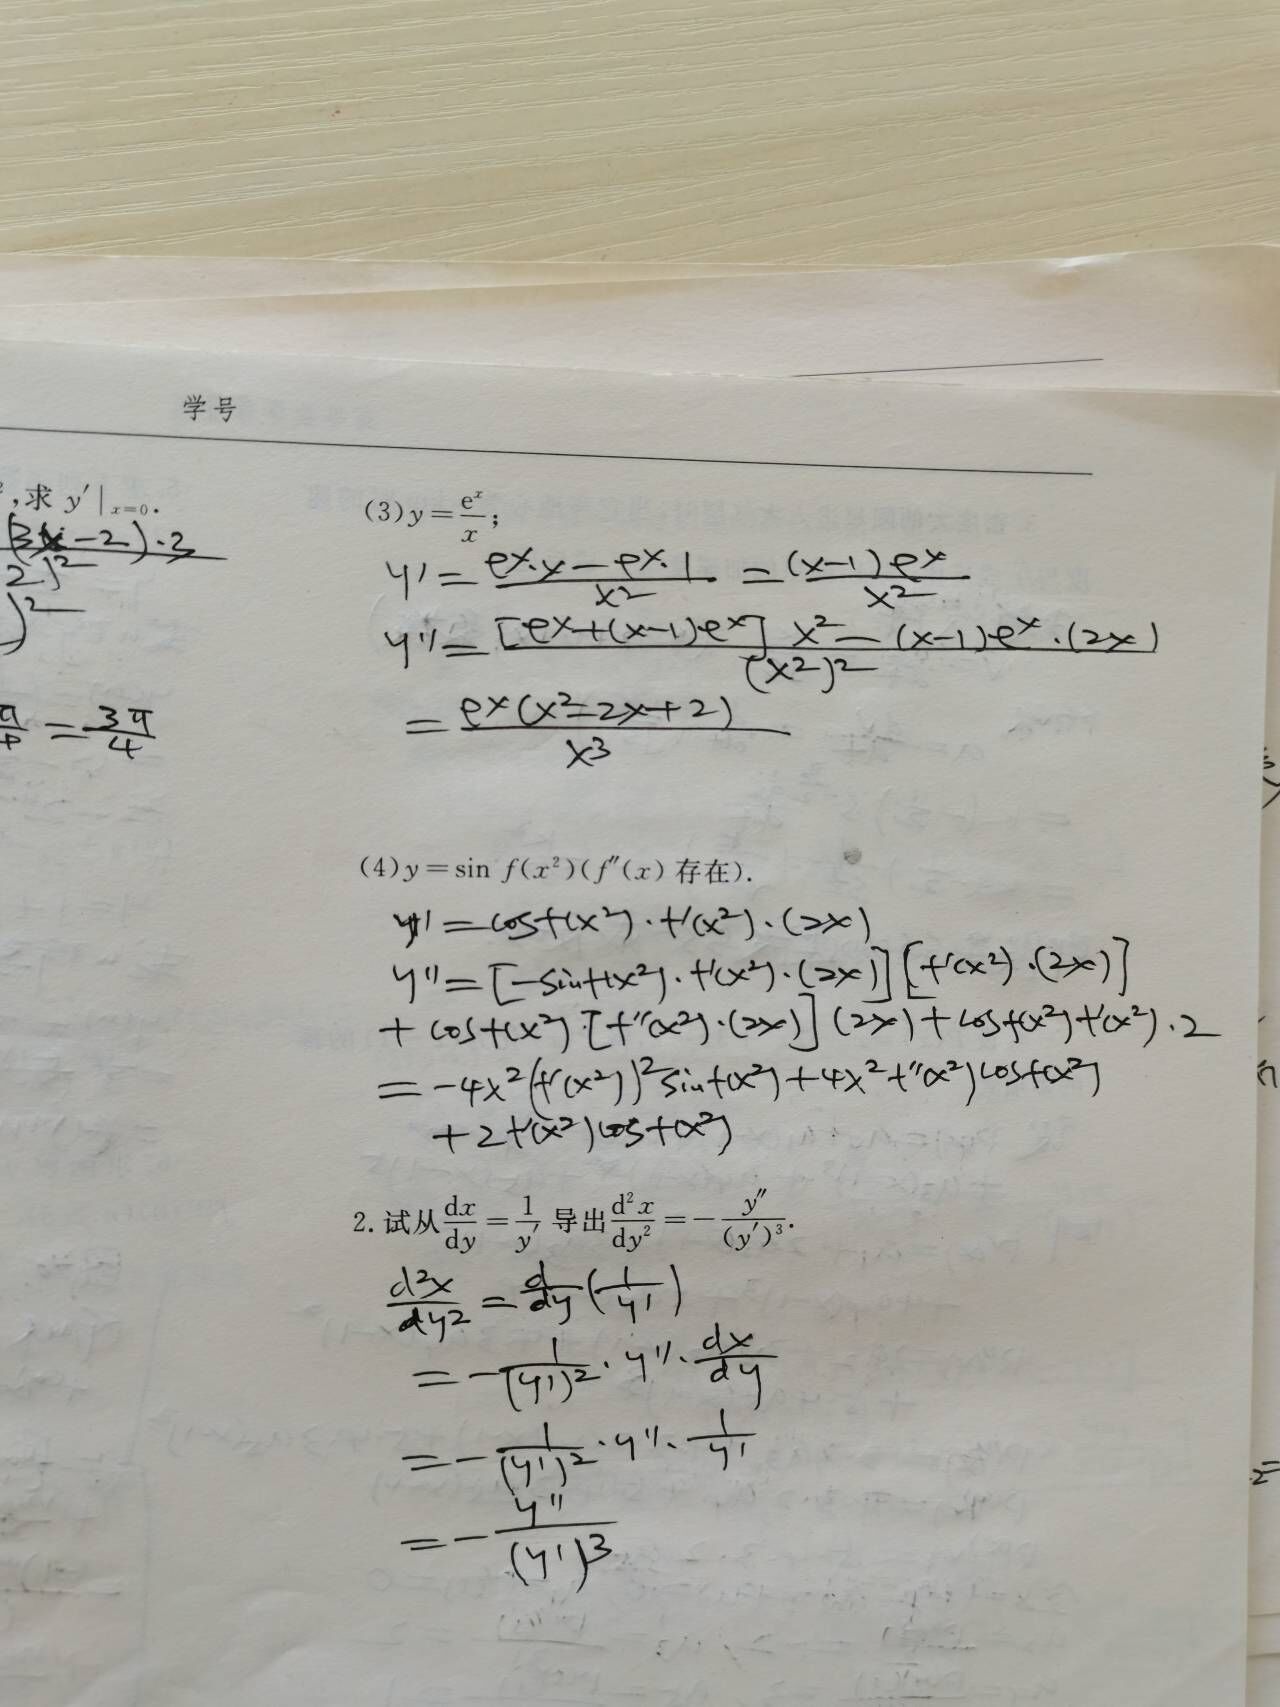 学号
,求 y′|ₓ₌₀.
(3x-2)·3
2)²
)²
= 3π/4
(3) y = eˣ/x;
y' = (eˣ·x - eˣ·1)/x² = (x-1)eˣ/x²
y'' = ([eˣ+(x-1)·eˣ] x² - (x-1)eˣ·(2x))/(x²)²
= eˣ(x²-2x+2)/x³
(4) y = sin f(x²) (f″(x) 存在).
y' = cosf(x²)·f'(x²)·(2x)
y'' = [-sinf(x²)·f'(x²)·(2x)][f'(x²)·(2x)]
+ cosf(x²)·[f''(x²)·(2x)](2x) + cosf(x²)f'(x²)·2
= -4x²(f'(x²))²sinf(x²) + 4x²f''(x²)cosf(x²)
+ 2f'(x²)cosf(x²)
2. 试从 dx/dy = 1/y′ 导出 d²x/dy² = -y″/(y′)³.
d²x/dy² = d/dy(1/y')
= -1/(y')²·y''·dx/dy
= -1/(y')²·y''·1/y'
= -y''/(y')³